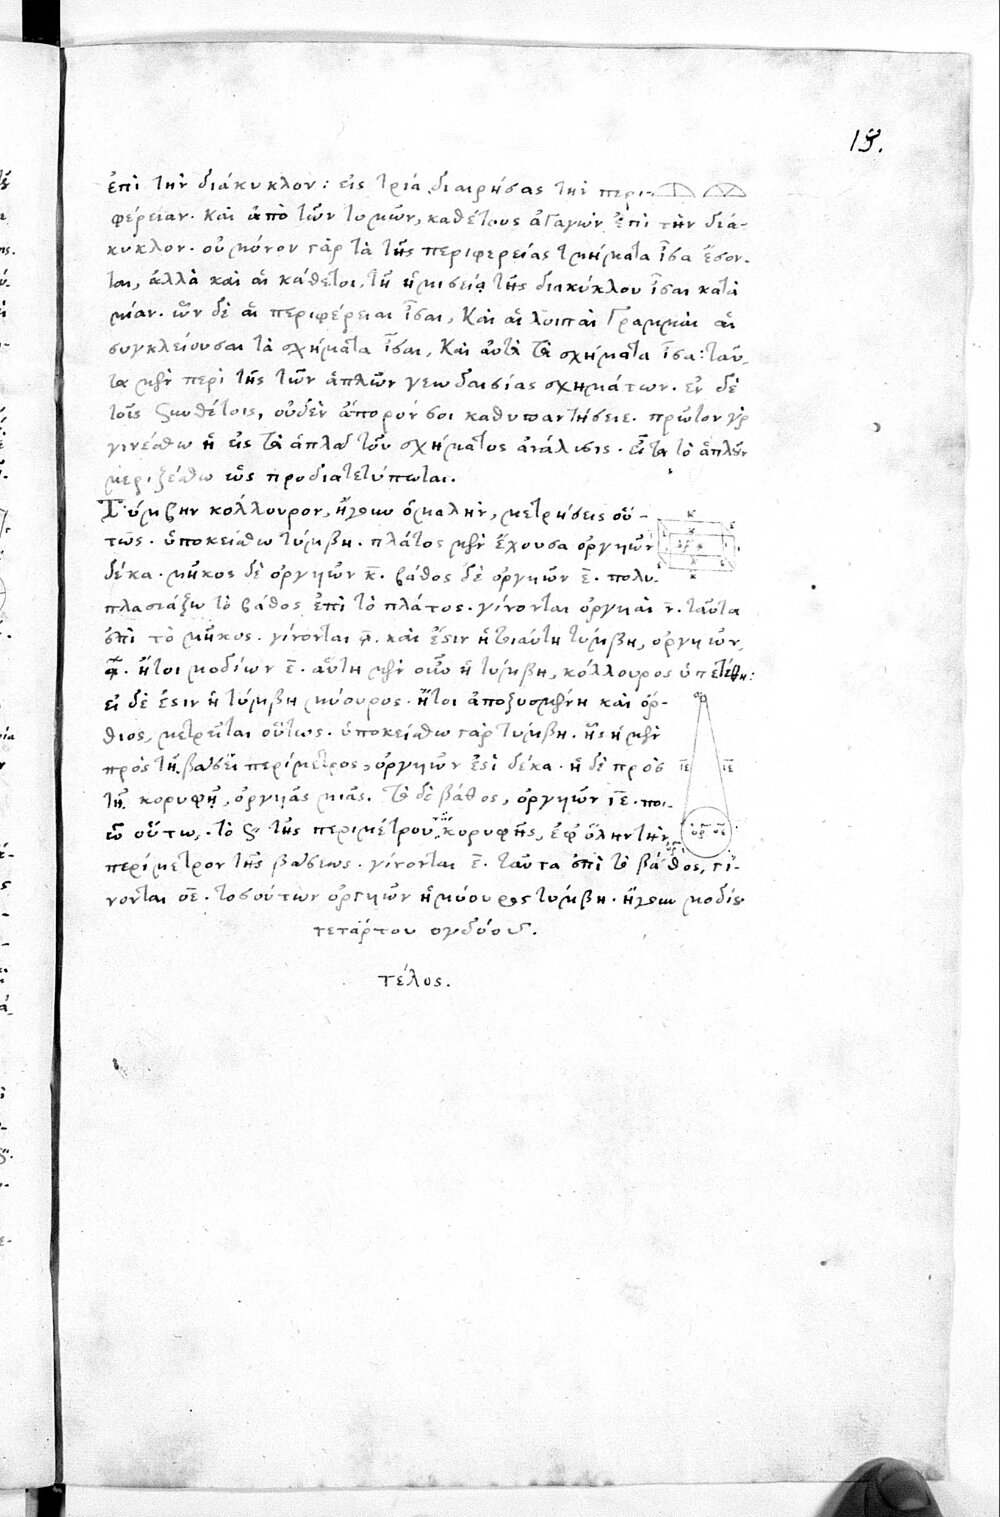 19.
ἐπὶ τὴν διάκυκλον: εἰς τρία διαιρήσας τὴν περι-
φέρειαν. καὶ ἀπὸ τῶν τομῶν, καθέτους ἀγαγὼν ἐπὶ τὴν διά-
κυκλον. οὐ μόνον γὰρ τὰ τῆς περιφερείας τμήματα ἶσα ἔσον-
ται, ἀλλὰ καὶ αἱ κάθετοι, τῇ ἡμισείᾳ τῆς διακύκλου ἶσαι κατὰ
μίαν. ὧν δὲ αἱ περιφέρειαι ἶσαι, καὶ αἱ λοιπαὶ γραμμαὶ αἱ
συγκλείουσαι τὰ σχήματα ἶσαι, καὶ αὐτὰ τὰ σχήματα ἶσα: ταῦ-
τα μὲν περὶ τῆς τῶν ἁπλῶν γεωδαισίας σχημάτων. ἐν δὲ
τοῖς συνθέτοις, οὐδὲν ἄπορόν σοι καθυπαντήσειε. πρῶτον γὰρ
γινέσθω ἡ εἰς τὰ ἁπλᾶ τοῦ σχήματος ἀνάλυσις. εἶτα τὸ ἁπλοῦν
μεριζέσθω ὡς προδιατετύπωται.
Τύμβην κόλλουρον, ἤγουν ὁμαλὴν, μετρήσεις οὕ-
τως. ὑποκείσθω τύμβη. πλάτος μὲν ἔχουσα ὀργυιῶν
δέκα. μῆκος δὲ ὀργυιῶν κ̅. βάθος δὲ ὀργυιῶν ε̅. πολυ-
πλασιάζω τὸ βάθος ἐπὶ τὸ πλάτος. γίνονται ὀργυιαὶ ν̅. ταῦτα
ἐπὶ τὸ μῆκος. γίνονται ͵α̅. καὶ ἔστιν ἡ τοιαύτη τύμβη, ὀργυιῶν
͵α̅. ἤτοι μοδίων ε̅. αὕτη μὲν οὖν ἡ τύμβη, κόλλουρος ὑπετέθη:
εἰ δὲ ἔστιν ἡ τύμβη μύουρος. ἤτοι ἀποξυσμένη καὶ ὄρ-
θιος, μετρεῖται οὕτως. ὑποκείσθω γὰρ τύμβη. ἧς ἡ μὲν
πρὸς τῇ βάσει περίμετρος, ὀργυιῶν ἐστὶ δέκα. ἡ δὲ πρὸς
τῇ κορυφῇ, ὀργυιᾶς μιᾶς. τὸ δὲ βάθος, ὀργυιῶν ιε̅. ποι-
ῶ οὕτω. τὸ 𐅵 τῆς περιμέτρου τῆς κορυφῆς, ἐφ' ὅλην τὴν
περίμετρον τῆς βάσεως. γίνονται ε̅. ταῦτα ἐπὶ τὸ βάθος, γί-
νονται οε̅. τοσούτων ὀργυιῶν ἡ μύουρος τύμβη. ἤγουν μοδίου
τετάρτου ὀγδόου.
τέλος.